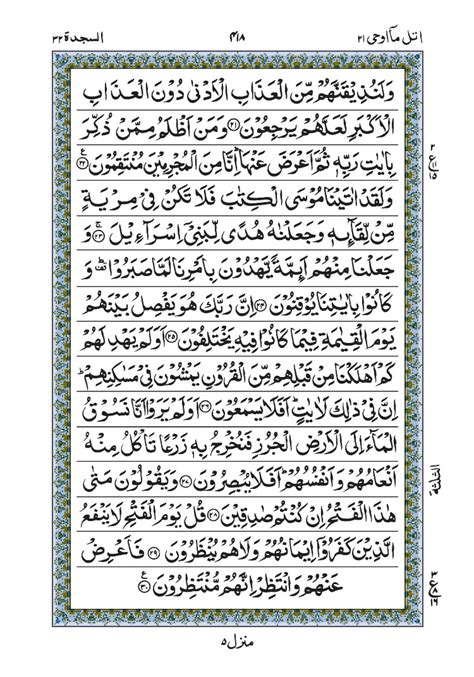 اتل مآاوحی ٢١ ۴١٨ السجدة ٣٢
وَلَنُذِيۡقَنَّهُمۡ مِّنَ الۡعَذَابِ الۡاَدۡنٰى دُوۡنَ الۡعَذَابِ
الۡاَكۡبَرِ لَعَلَّهُمۡ يَرۡجِعُوۡنَ ﴿٢١﴾ وَمَنۡ اَظۡلَمُ مِمَّنۡ ذُكِّرَ
بِاٰيٰتِ رَبِّهٖ ثُمَّ اَعۡرَضَ عَنۡهَا ؕ اِنَّا مِنَ الۡمُجۡرِمِيۡنَ مُنۡتَقِمُوۡنَ ﴿٢٢﴾
وَلَقَدۡ اٰتَيۡنَا مُوۡسَى الۡكِتٰبَ فَلَا تَكُنۡ فِىۡ مِرۡيَةٍ
مِّنۡ لِّقَآئِهٖ وَجَعَلۡنٰهُ هُدًى لِّبَنِىۡۤ اِسۡرَآءِيۡلَ ﴿٢٣﴾ وَ
جَعَلۡنَا مِنۡهُمۡ اَئِمَّةً يَّهۡدُوۡنَ بِاَمۡرِنَا لَمَّا صَبَرُوۡا ؕ وَ
كَانُوۡا بِاٰيٰتِنَا يُوۡقِنُوۡنَ ﴿٢٤﴾ اِنَّ رَبَّكَ هُوَ يَفۡصِلُ بَيۡنَهُمۡ
يَوۡمَ الۡقِيٰمَةِ فِيۡمَا كَانُوۡا فِيۡهِ يَخۡتَلِفُوۡنَ ﴿٢٥﴾ اَوَلَمۡ يَهۡدِ لَهُمۡ
كَمۡ اَهۡلَكۡنَا مِنۡ قَبۡلِهِمۡ مِّنَ الۡقُرُوۡنِ يَمۡشُوۡنَ فِىۡ مَسٰكِنِهِمۡ ؕ
اِنَّ فِىۡ ذٰلِكَ لَاٰيٰتٍ ؕ اَفَلَا يَسۡمَعُوۡنَ ﴿٢٦﴾ اَوَلَمۡ يَرَوۡا اَنَّا نَسُوۡقُ
الۡمَآءَ اِلَى الۡاَرۡضِ الۡجُرُزِ فَنُخۡرِجُ بِهٖ زَرۡعًا تَاۡكُلُ مِنۡهُ
اَنۡعَامُهُمۡ وَاَنۡفُسُهُمۡ ؕ اَفَلَا يُبۡصِرُوۡنَ ﴿٢٧﴾ وَيَقُوۡلُوۡنَ مَتٰى
هٰذَا الۡفَتۡحُ اِنۡ كُنۡتُمۡ صٰدِقِيۡنَ ﴿٢٨﴾ قُلۡ يَوۡمَ الۡفَتۡحِ لَا يَنۡفَعُ
الَّذِيۡنَ كَفَرُوۡۤا اِيۡمَانُهُمۡ وَلَا هُمۡ يُنۡظَرُوۡنَ ﴿٢٩﴾ فَاَعۡرِضۡ
عَنۡهُمۡ وَانۡتَظِرۡ اِنَّهُمۡ مُّنۡتَظِرُوۡنَ ﴿٣٠﴾
الثلثة
منزل ۵